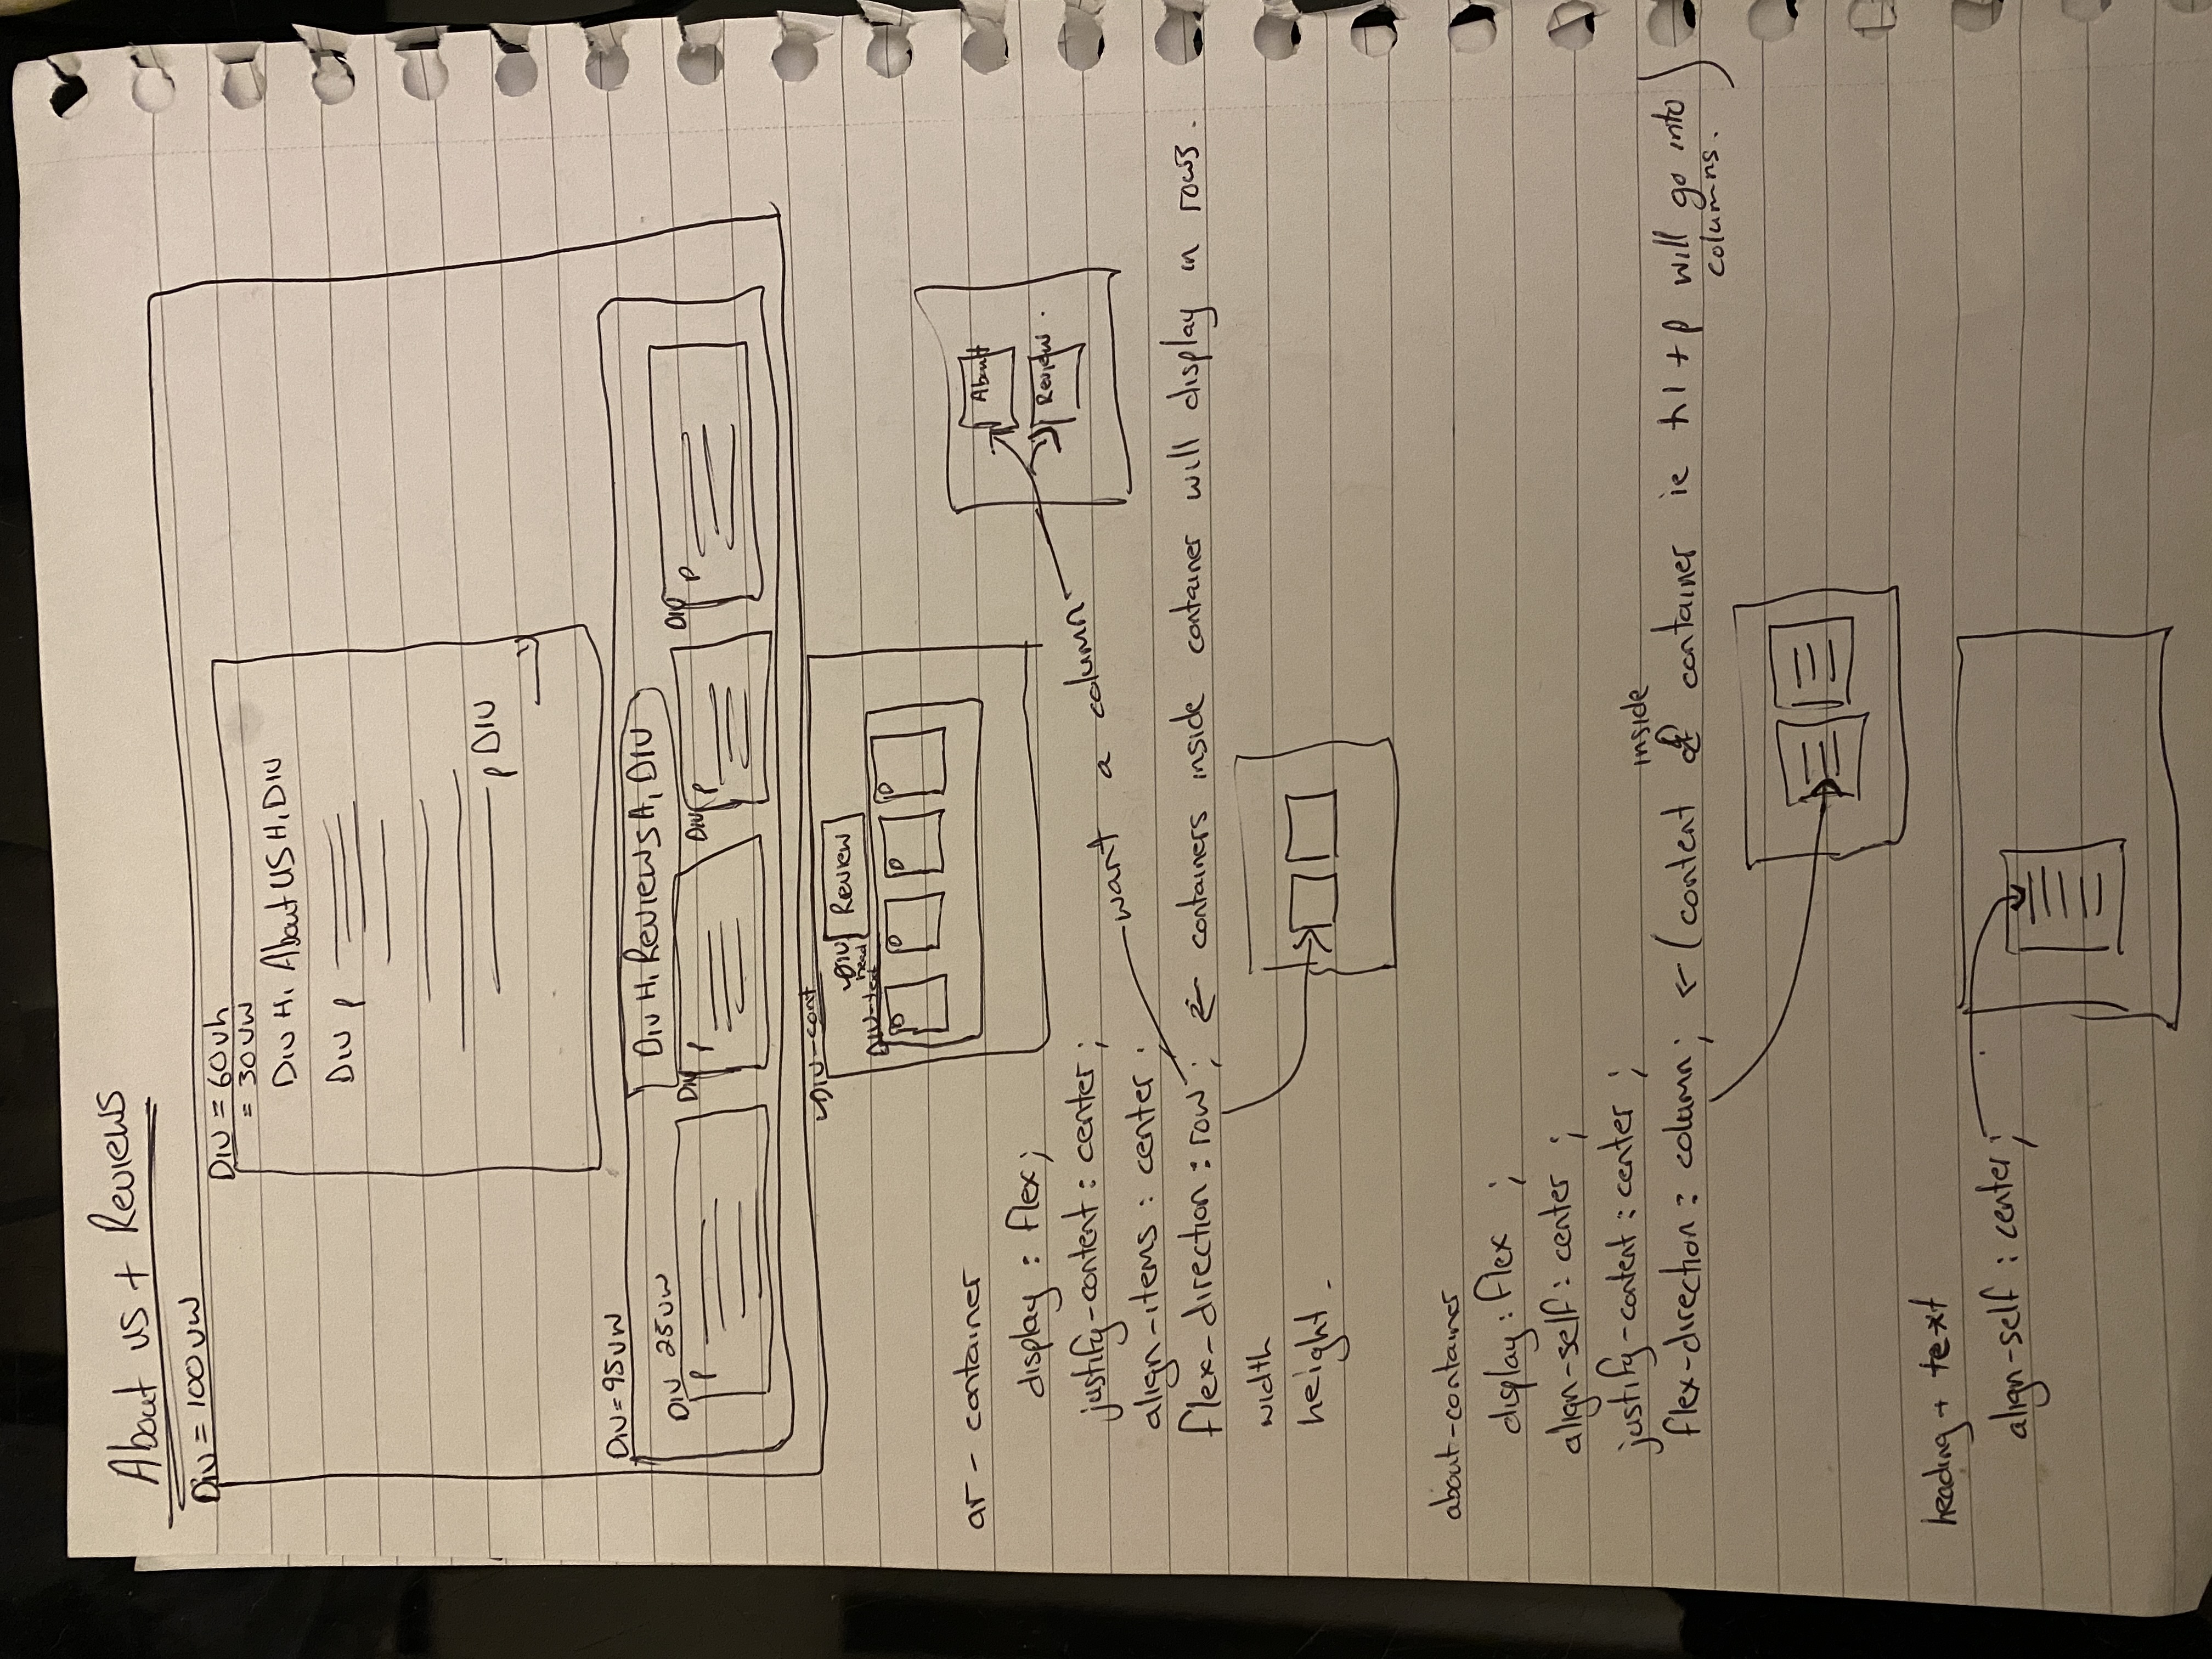 About us + Reviews
Div = 100vw
Div = 60vh
= 30vw
Div H1 About US H1 Div
Div p
p Div
Div = 95vw
Div H1 Reviews H1 Div
Div 25vw
Div
Div
Div
p
p
p
p
Div-cont
Div
head
Review
Div-text
D
D
D
D
ar - container
display : flex;
justify-content : center ;
align-items : center ;
flex-direction : row ; ← containers inside container will display in rows.
want a column
About
Review
width
height
about-container
display : flex ;
align-self : center ;
justify-content : center ;
inside
flex-direction : column; ← (content container ie h1 + p will go into
columns. )
heading + text
align-self : center;